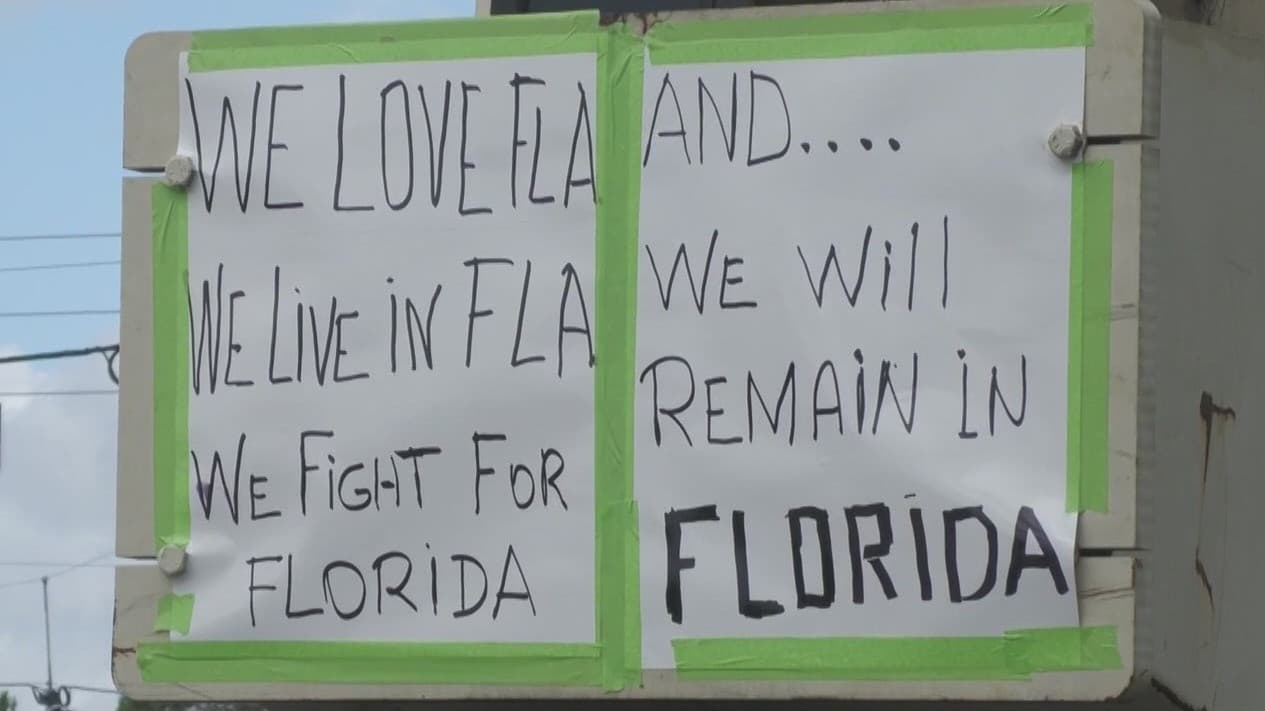 WE LOVE FLA
WE LiVE iN FLA
WE FiGHT FOR
FLORiDA
AND....
WE Will
REMAiN iN
FLORiDA